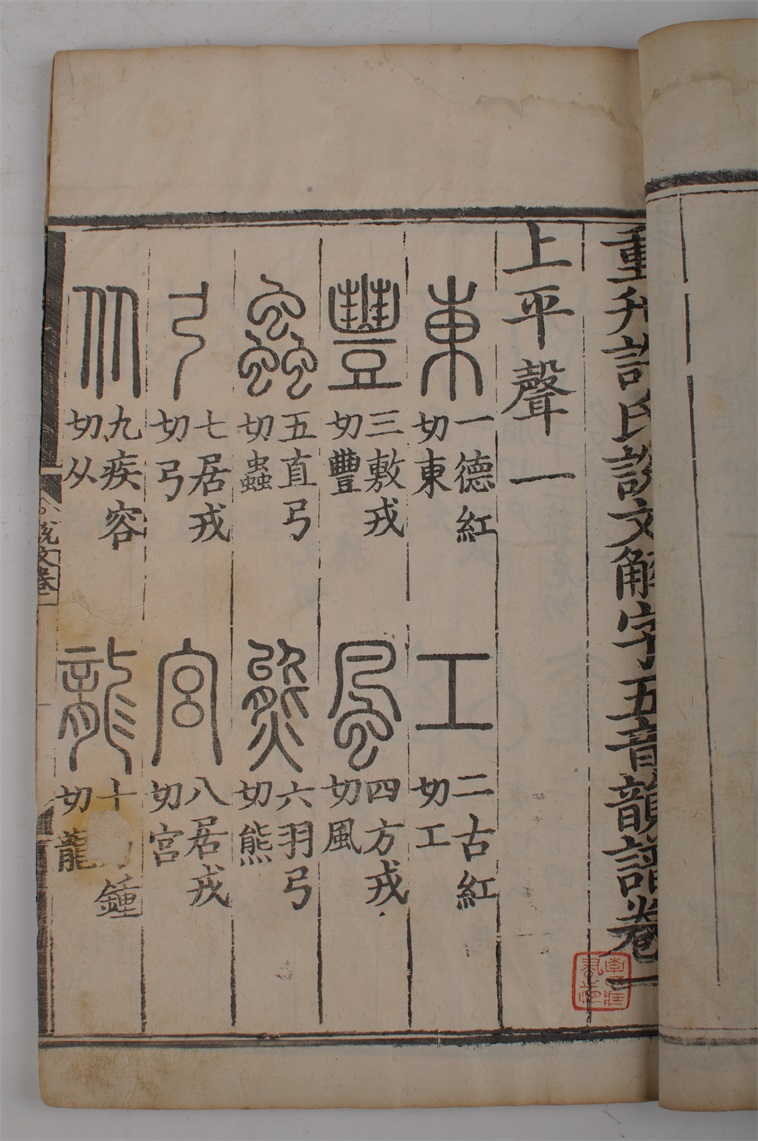 重刋許氏說文解字五音韻譜卷一
上平聲一
東
一德紅
切東
工
二古紅
切工
豐
三敷戎
切豐
風
四方戎
切風
蟲
五直弓
切蟲
熊
六羽弓
切熊
弓
七居戎
切弓
宮
八居戎
切宮
从
九疾容
切从
龍
十鍾
切龍
說文卷一